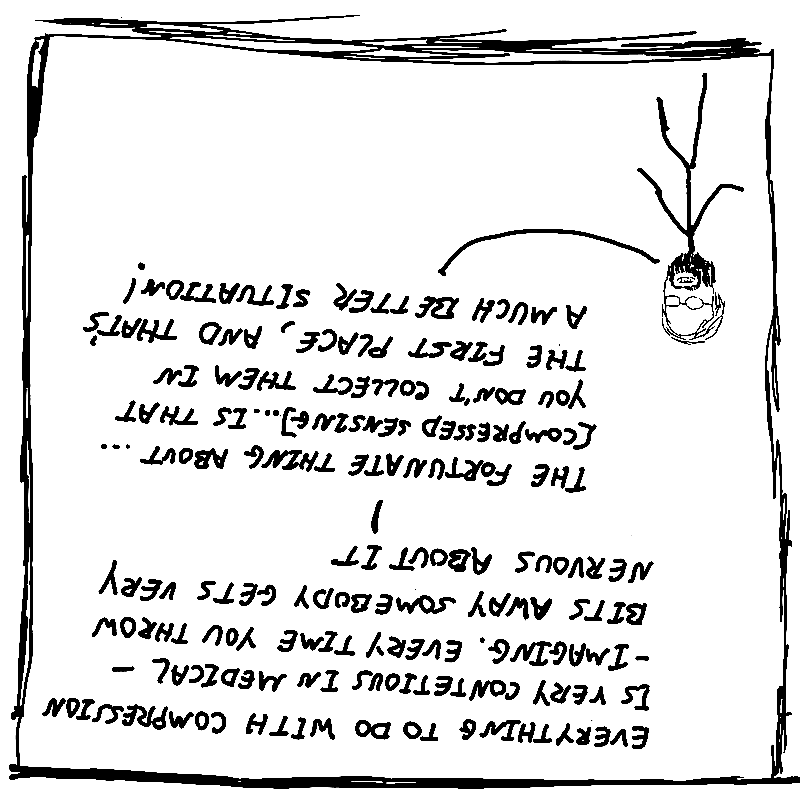 EVERYTHING TO DO WITH COMPRESSION
IS VERY CONTETIOUS IN MEDICAL -
-IMAGING. EVERY TIME YOU THROW
BITS AWAY SOMEBODY GETS VERY
NERVOUS ABOUT IT
THE FORTUNATE THING ABOUT ...
[COMPRESSED SENSING]...IS THAT
YOU DON'T COLLECT THEM IN
THE FIRST PLACE, AND THAT'S
A MUCH BETTER SITUATION!